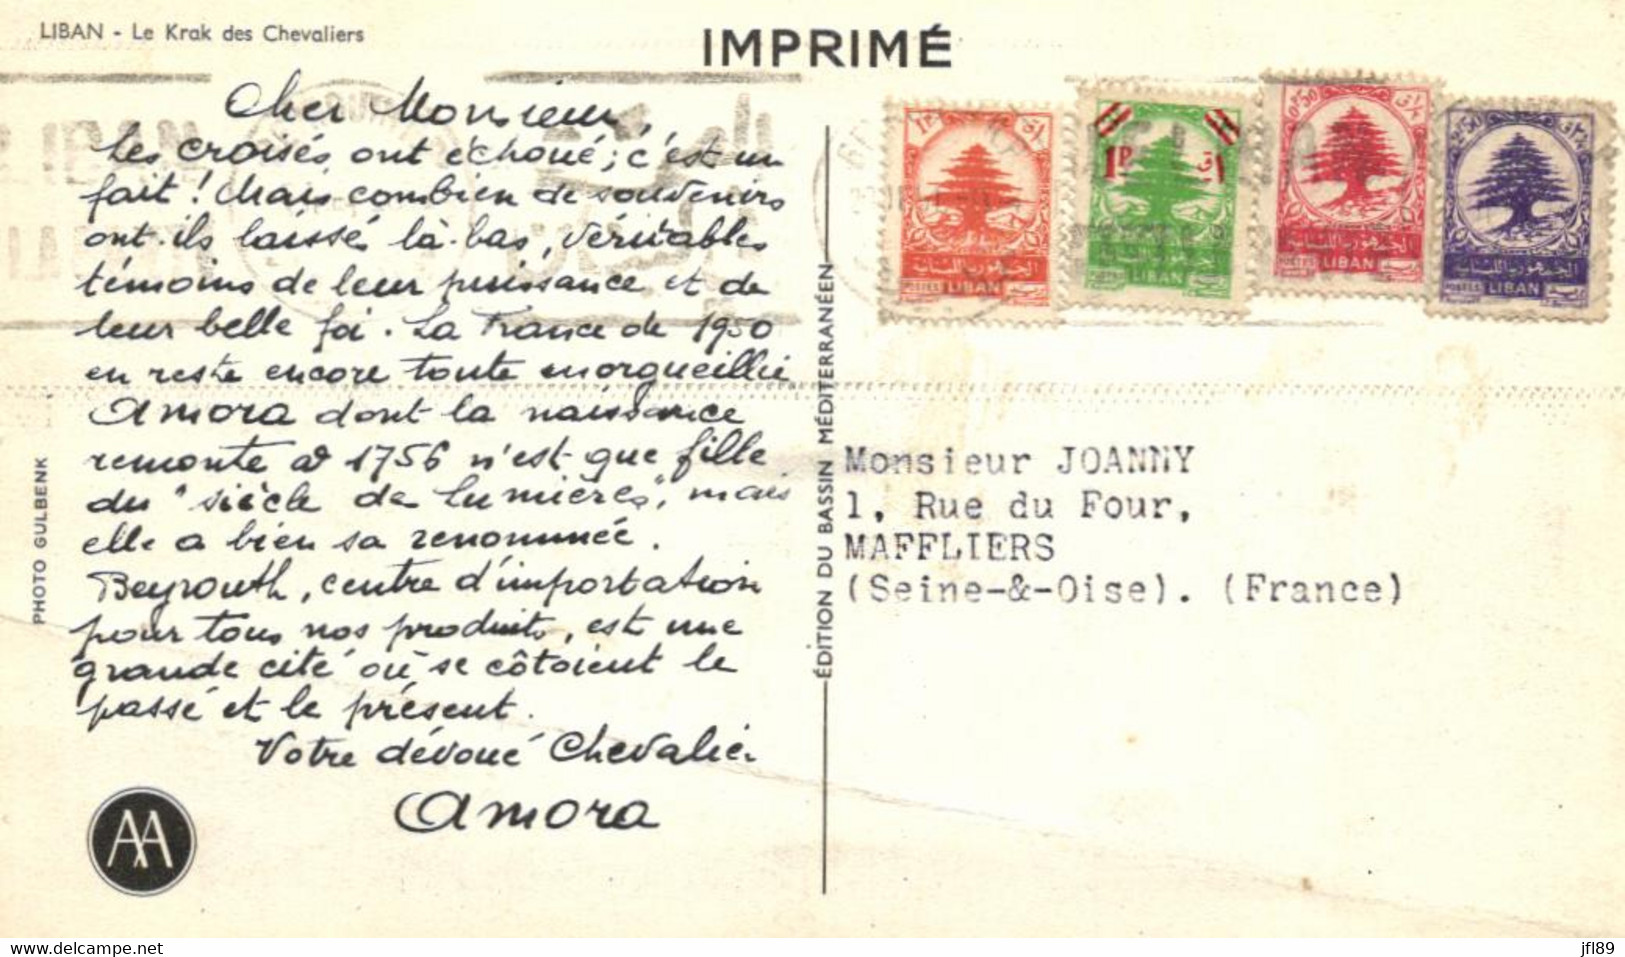 LIBAN - Le Krak des Chevaliers
IMPRIMÉ
Cher Monsieur,
Les croisés ont échoué; c'est un
fait! Mais combien de souvenirs
ont-ils laissés là-bas, véritables
témoins de leur puissance et de
leur belle foi. La France de 1950
en reste encore toute enorgueillie
Amora dont la naissance
remonte à 1756 n'est que fille
du "siècle de lumières", mais
elle a bien sa renommée.
Beyrouth, centre d'importation
pour tous nos produits, est une
grande cité où se côtoient le
passé et le présent.
Votre dévoué Chevalier
Amora
AA
PHOTO GULBENK
ÉDITION DU BASSIN MÉDITERRANÉEN
1P
LIBAN
1P
LIBAN
0P50
الجمهورية اللبنانية
LIBAN
POSTES
الجمهورية اللبنانية
LIBAN
Monsieur JOANNY
1, Rue du Four,
MAFFLIERS
(Seine-&-Oise). (France)
www.delcampe.net
jfl89